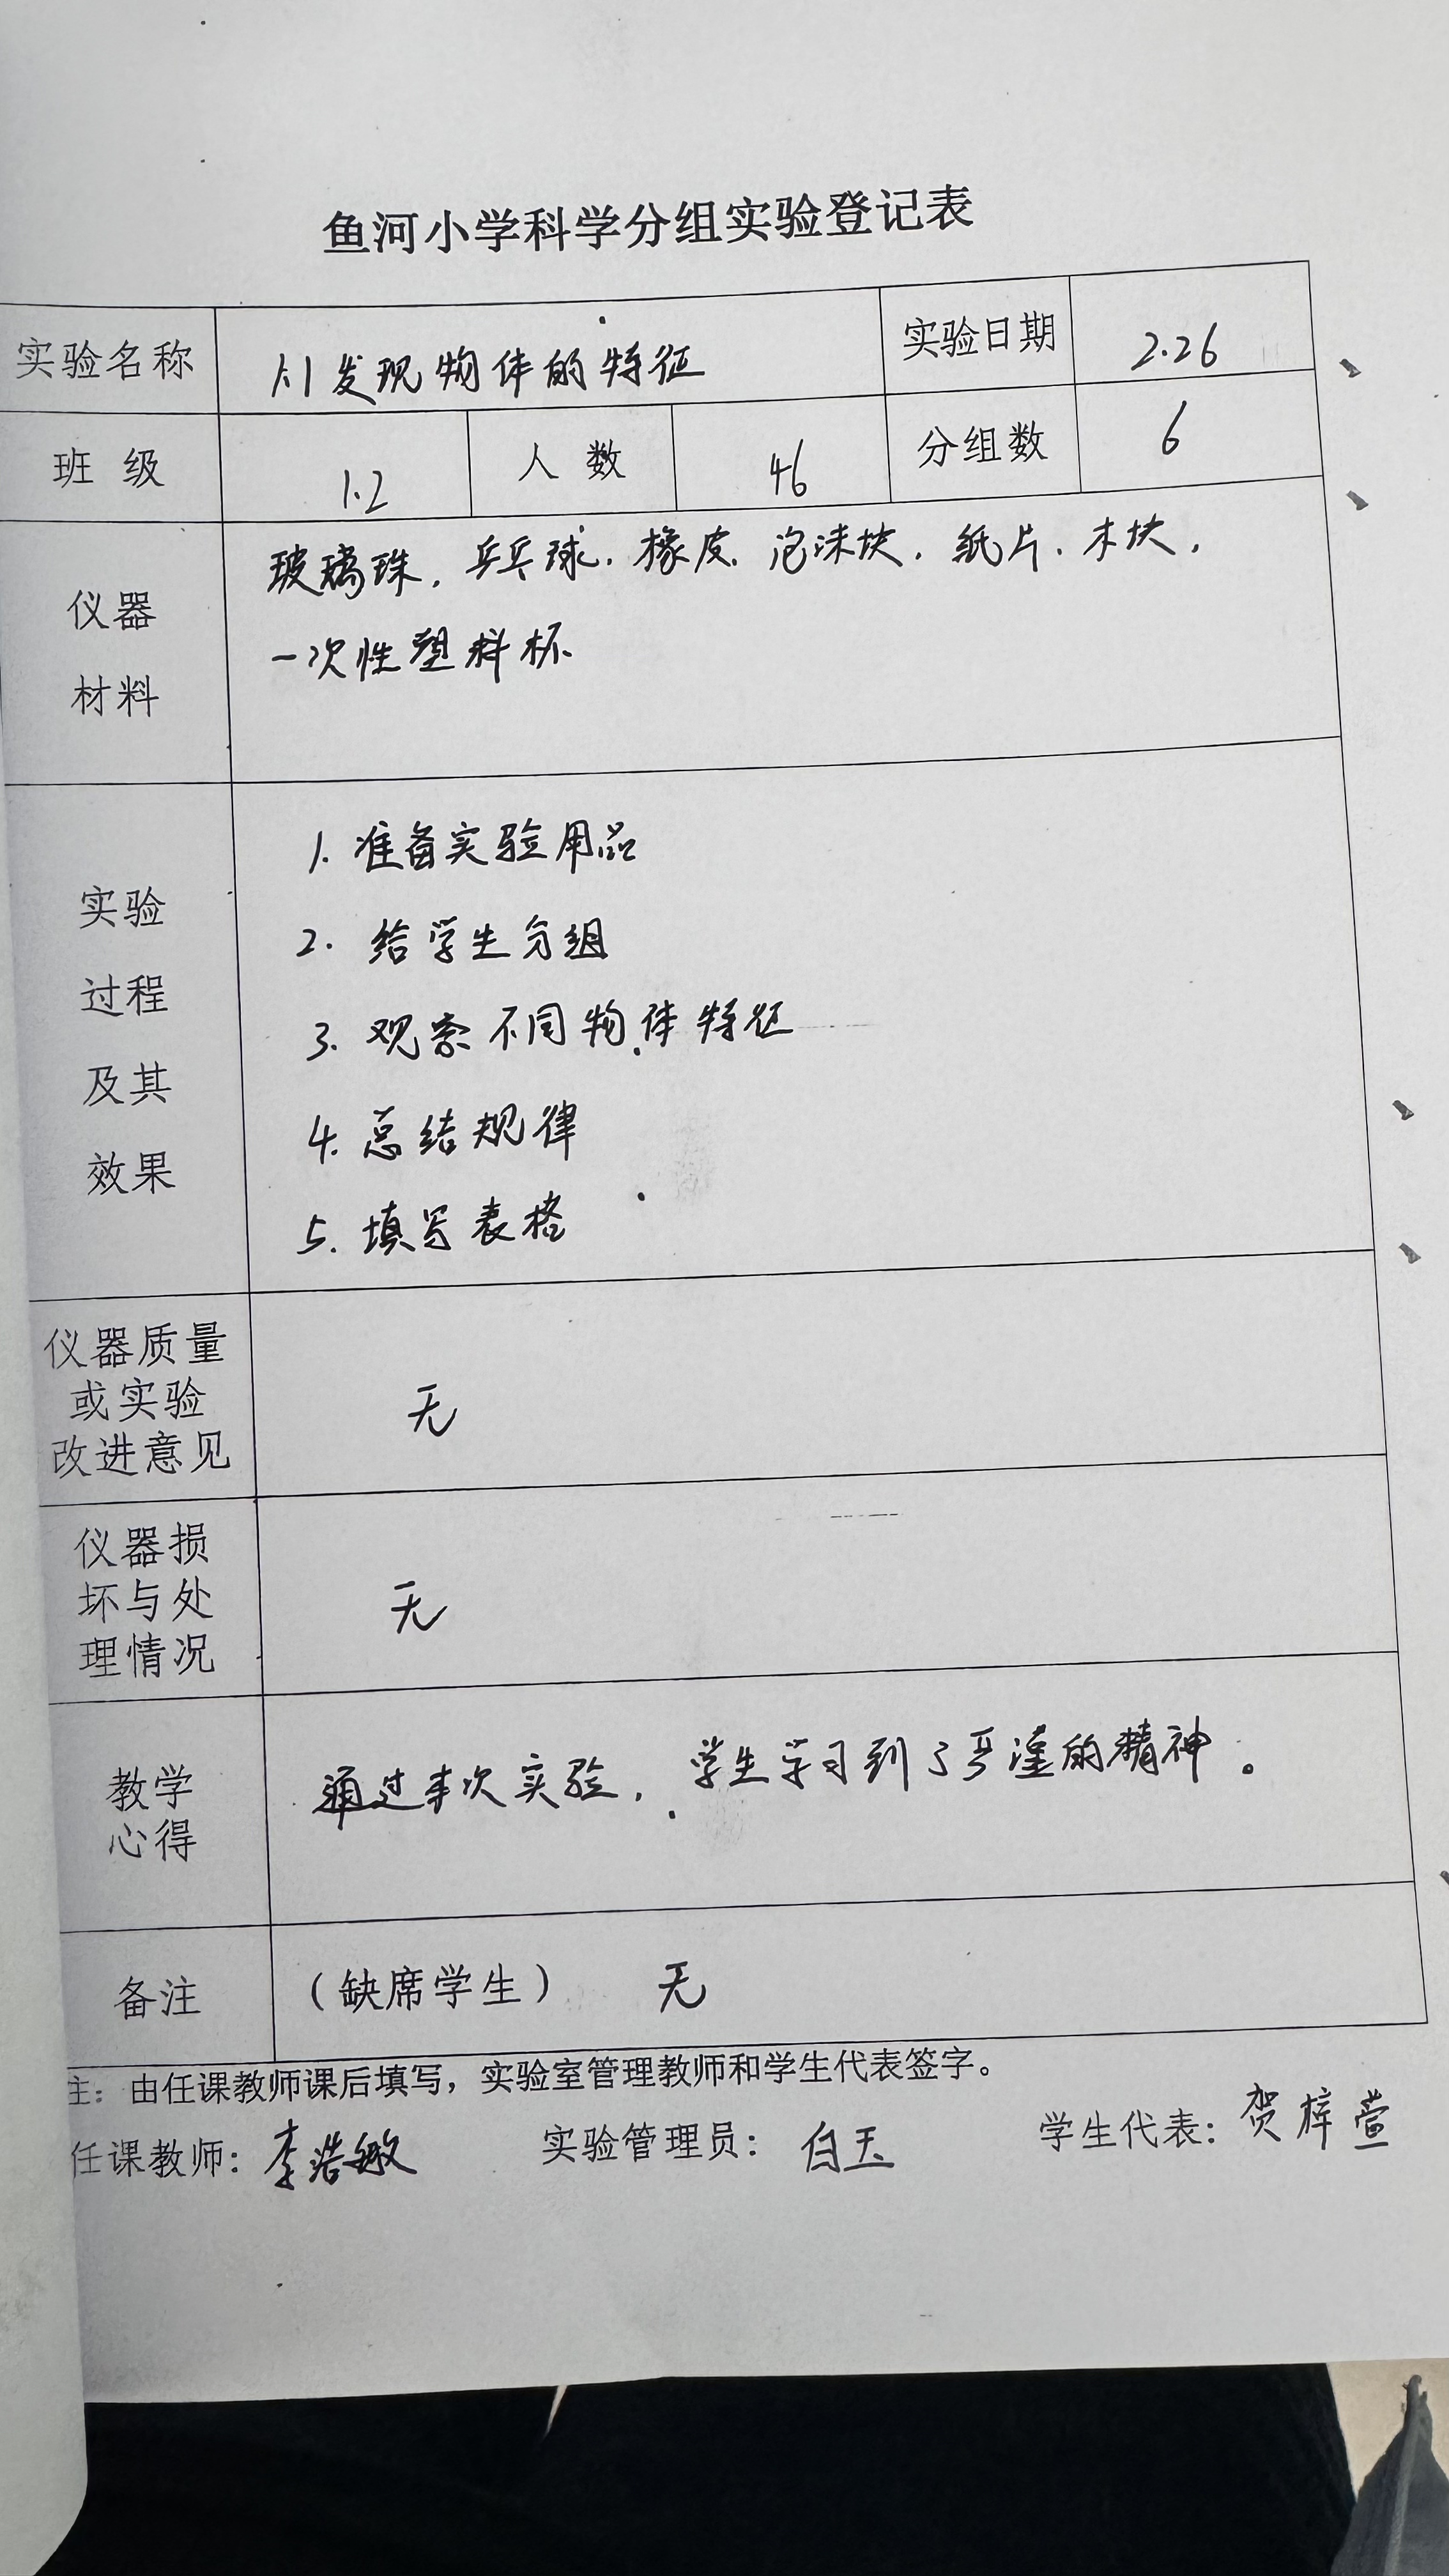 鱼河小学科学分组实验登记表
实验名称 1.1发现物体的特征 实验日期 2.26
班 级 1.2 人 数 46 分组数 6
仪器
材料
玻璃珠，乒乓球，橡皮、泡沫块，纸片、木块，
一次性塑料杯
实验
过程
及其
效果
1. 准备实验用品
2. 给学生分组
3. 观察不同物体特征
4. 总结规律
5. 填写表格
仪器质量
或实验
改进意见
无
仪器损
坏与处
理情况
无
教学
心得
通过本次实验，学生学习到了严谨的精神。
备注 （缺席学生） 无
注：由任课教师课后填写，实验室管理教师和学生代表签字。
任课教师：李浩敏 实验管理员：白玉 学生代表：贺梓萱